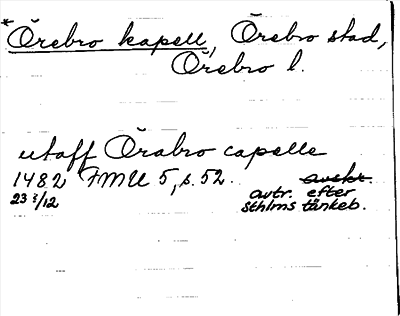 * Örebro kapell, Örebro stad,
Örebro l.
utaff Örabro capelle
1482 FMU 5, s. 52. avskr.
23 3/12 avtr. efter
Sthlms tänkeb.